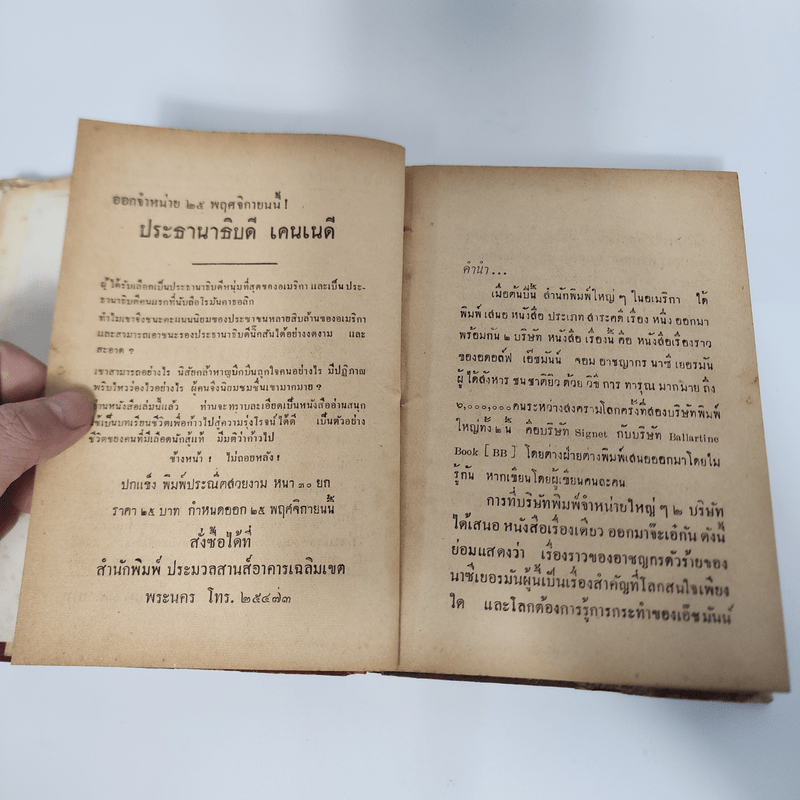 ออกจำหน่าย ๒๕ พฤศจิกายนนี้!
ประธานาธิบดี เคนเนดี
ผู้ได้รับเลือกเป็นประธานาธิบดีหนุ่มที่สุดของอเมริกา และเป็น ประ-
ธานาธิบดีคนแรกที่นับถือโรมันคาธอลิก
ทำไมเขาจึงชนะคะแนนนิยมของประชาชนหลายสิบล้านของอเมริกา
และสามารถเอาชนะรองประธานาธิบดีนิ๊กสันได้อย่างงดงาม และ
สะอาด ?
เขาสามารถอย่างไร นิสัยกล้าหาญฝึกปืนถูกใจคนอย่างไร มีปฏิภาณ
พริบไหวว่องไวอย่างไร ผู้คนจึงนิยมชมชื่นเขามากมาย ?
อ่านหนังสือเล่มนี้แล้ว ท่านจะทราบละเอียดเป็นหนังสืออ่านสนุก
เป็นบทเรียนชีวิตเพื่อก้าวไปสู่ความรุ่งโรจน์ได้ดี เป็นตัวอย่าง
ชีวิตของคนที่มีเลือดนักสู้แท้ มีมติว่าก้าวไป
ข้างหน้า ! ไม่ถอยหลัง !
ปกแข็ง พิมพ์ประณีตสวยงาม หนา ๓๐ ยก
ราคา ๒๕ บาท กำหนดออก ๒๕ พฤศจิกายนนี้
สั่งซื้อได้ที่
สำนักพิมพ์ ประมวลสาส์นอาคารเฉลิมเขต
พระนคร โทร. ๒๕๔๗๓
คำนำ...
เมื่อต้นปีนี้ สำนักพิมพ์ใหญ่ ๆ ในอเมริกา ได้
พิมพ์ เสนอ หนังสือ ประเภท สาระคดี เรื่อง หนึ่ง ออกมา
พร้อมกัน ๒ บริษัท หนังสือ เรื่องนี้ คือ หนังสือเรื่องราว
ของอดอล์ฟ เอ็ชมันน์ จอม อาชญากร นาซี เยอรมัน
ผู้ ได้สังหาร ชนชาติยิว ด้วย วิธี การ ทารุณ มากมาย ถึง
๖,๐๐๐,๐๐๐คนระหว่างสงครามโลกครั้งที่สองบริษัทพิมพ์
ใหญ่ทั้ง ๒ นี้ คือบริษัท Signet กับบริษัท Ballartine
Book [ BB ] โดยต่างฝ่ายต่างพิมพ์เสนอออกมาโดยไม่
รู้กัน หากเขียนโดยผู้เขียนคนละคน
การที่บริษัทพิมพ์จำหน่ายใหญ่ๆ ๒ บริษัท
ได้เสนอ หนังสือเรื่องเดียว ออกมาจ๊ะเอ๋กัน ดังนี้
ย่อมแสดงว่า เรื่องราวของอาชญากรตัวร้ายของ
นาซีเยอรมันผู้นี้เป็นเรื่องสำคัญที่โลกสนใจเพียง
ใด และโลกต้องการรู้การกระทำของเอ๊ชมันน์